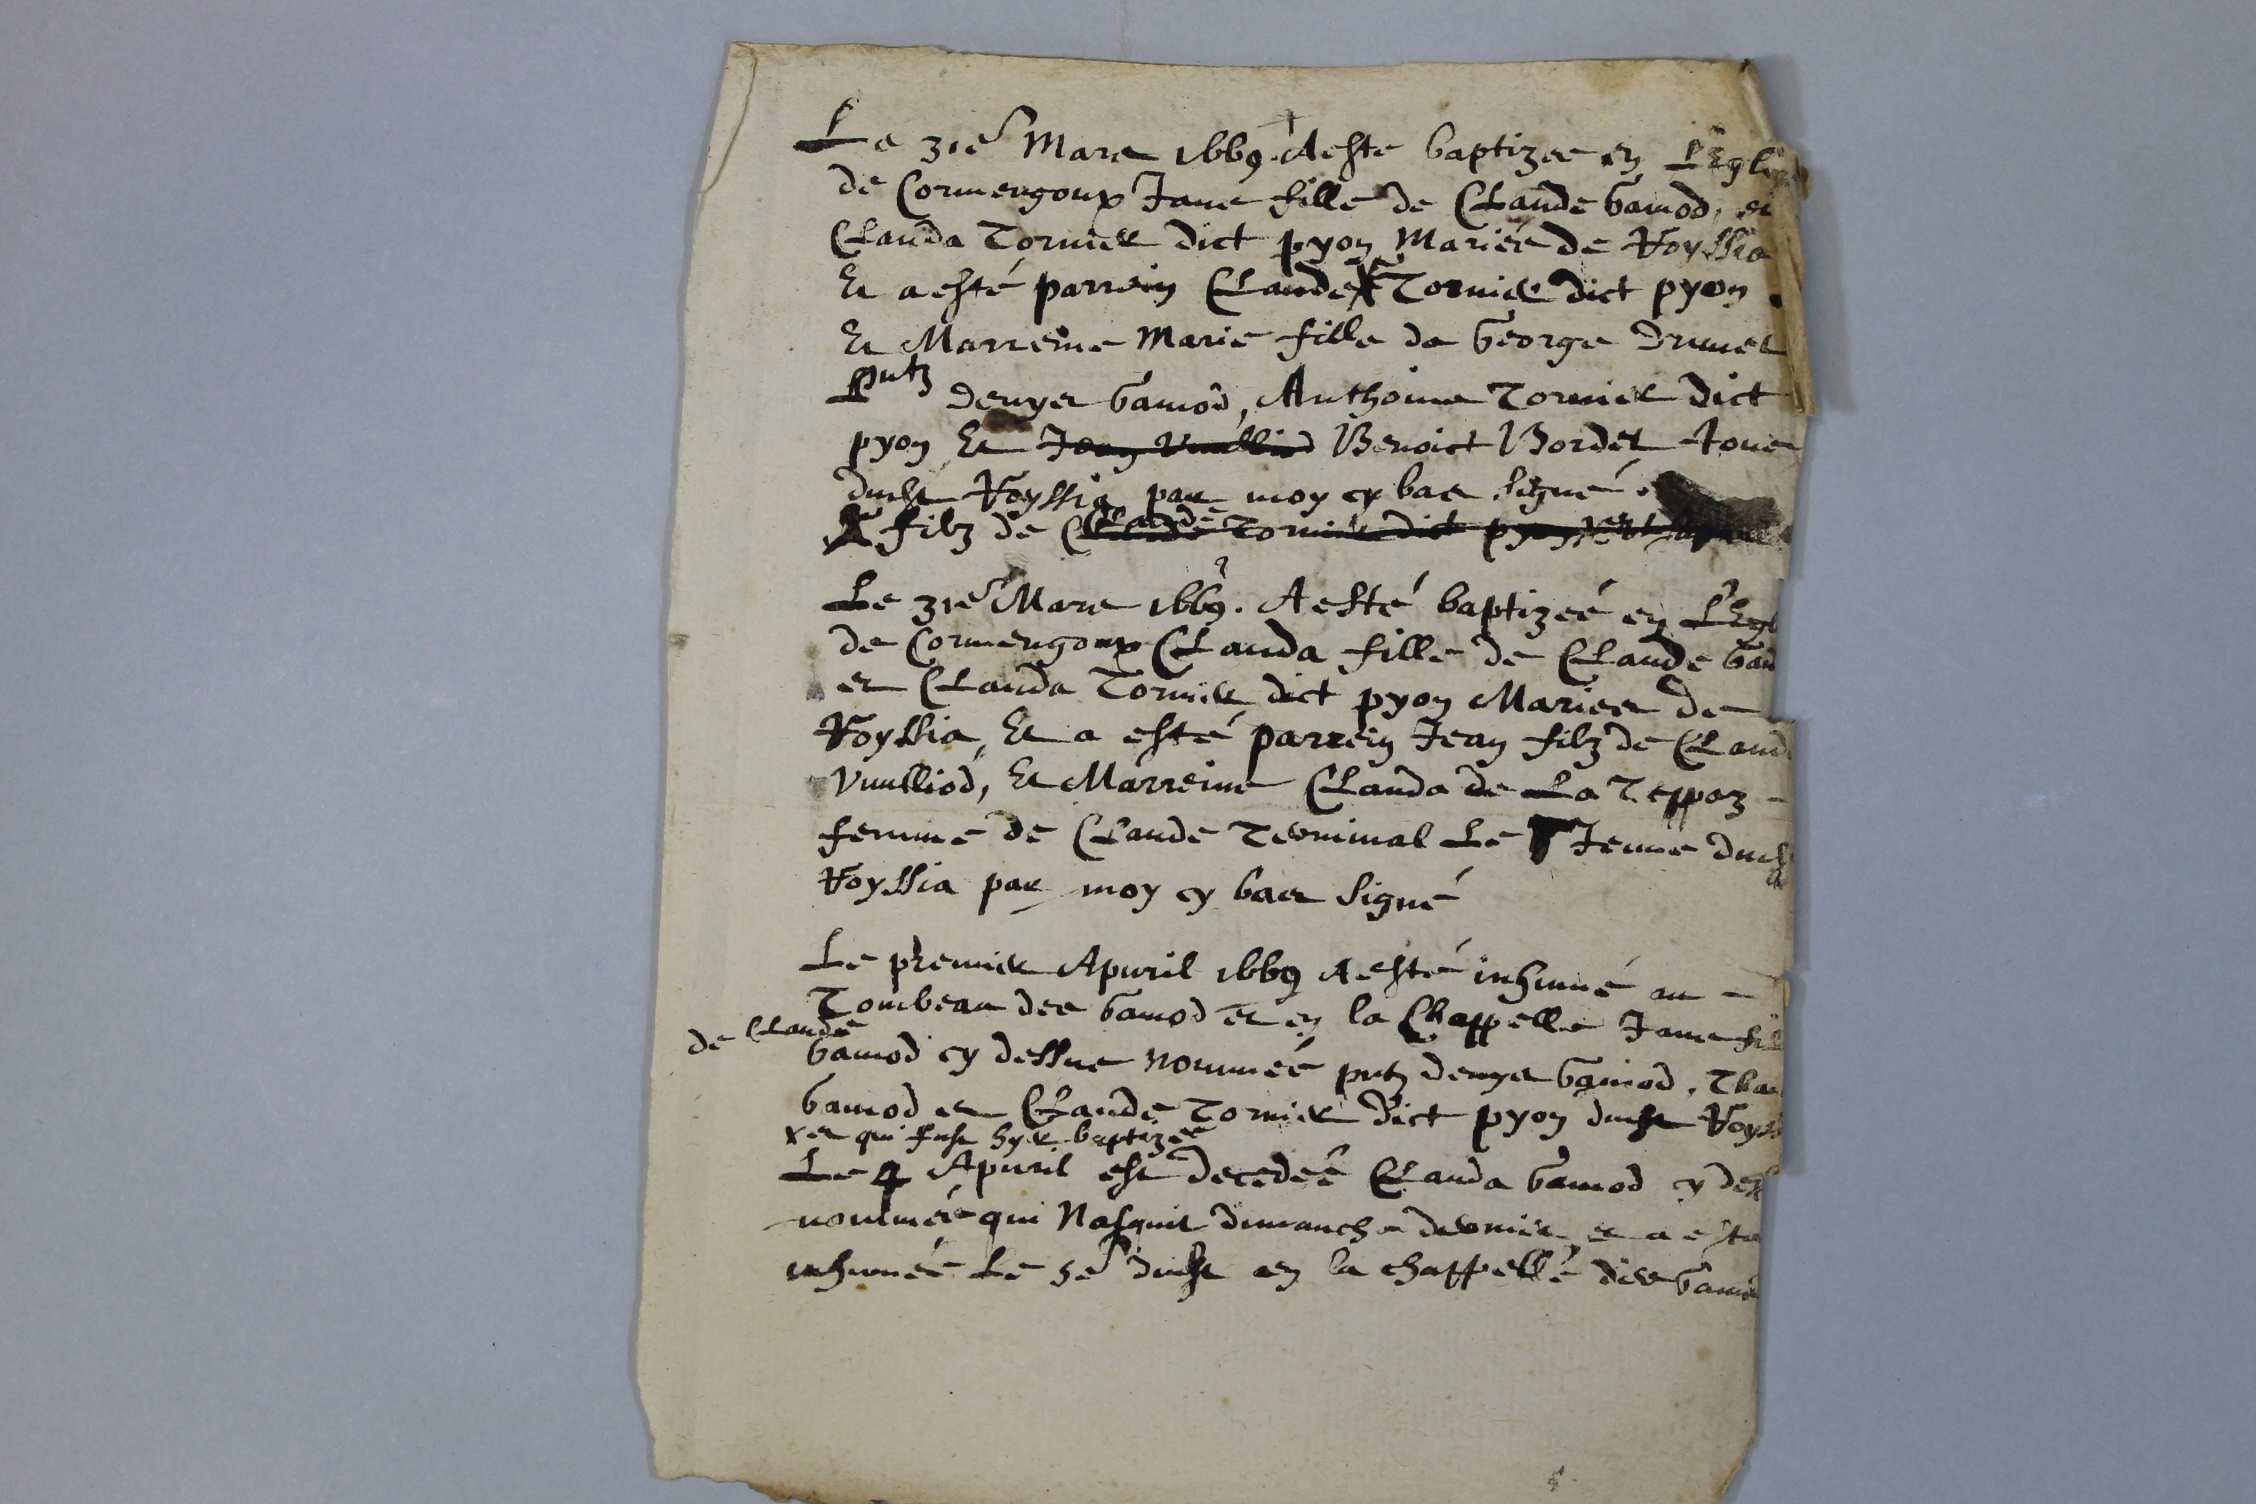 Le 31e Mars 1669. A este baptizee en L'Eglis
de Cormengoux Jane fille de Claude Gamod, et
Clauda Tornier dict pyon Mariés de Royssia
Et a esté parrein Claude Tornier dict pyon
Et Marreine Marie fille de George
Pntz Denys Gamod, Anthoine Tornier dict
pyon Et Jean Vuilliod Benoict Bordet Tous
dudt Royssia par moy cy bas signé
filz de Claude Tornier dict pyon
Le 31e Mars 1669. A esté baptizeé en L'Egl
de Cormengoux Clauda fille de Claude Gam
et Clauda Tornier dict pyon Mariés de
Royssia, Et a esté parrein Jean filz de Claud
Vuilliod, Et Marreine Clauda de La Teppaz
femme de Claude Le Jeune dudt
Royssia par moy cy bas signé
Le premier Apuril 1669 A esté inhumé au
Tombeau des Gamod et en la Chappelle Jane fil
de Claude
Gamod cy dessus nommeé pntz denys Gamod,
Gamod et Claude Tornier dict pyon dudt Royss
et qui fust hyer baptizee
Le 4 Apuril est decedeé Clauda Gamod cy dess
nommeé qui Nasquit dimanche dernier et a este
inhumeé Le 5e dudt en la chappelle des Gamod